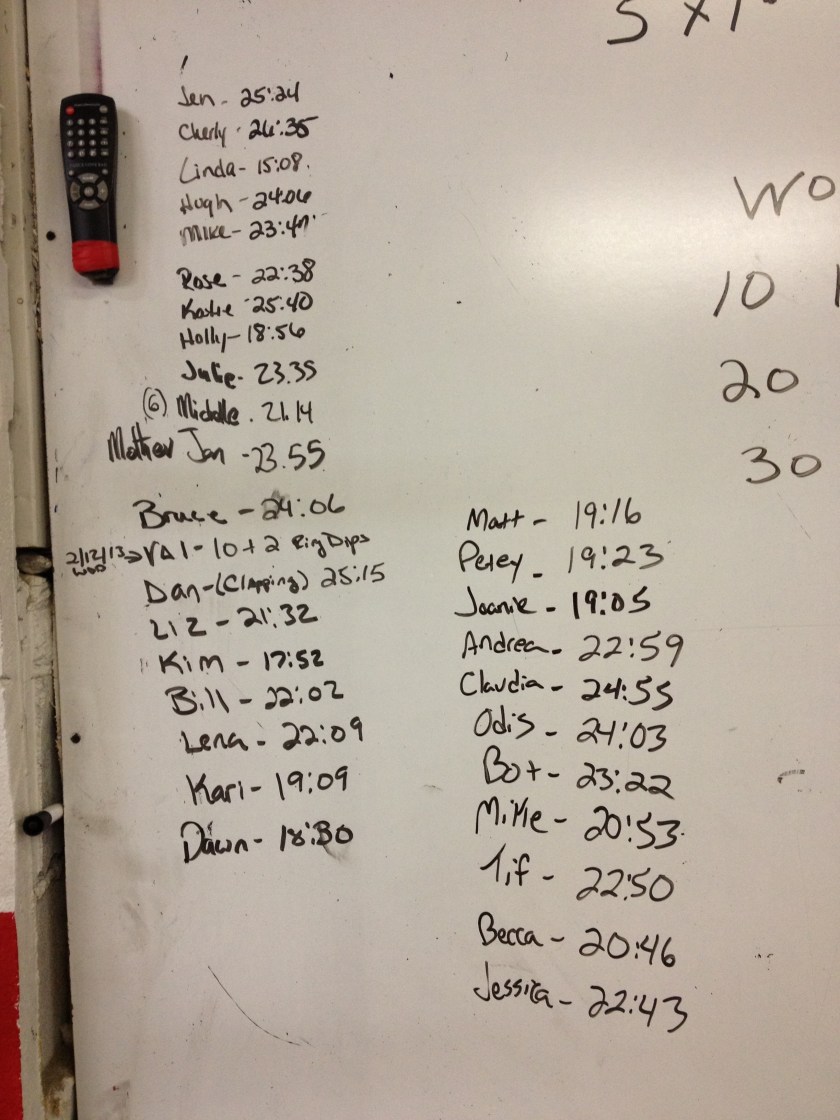 5 x 1
Jen - 25:24
Cherly - 26:35
Linda - 15:08.
Hugh - 24:06
Mike - 23:47
Rose - 22:38
Katie - 25:40
Holly - 18:56
Julie - 23.35
(6) Middle . 21.14
Jan - 23.55
Bruce - 24:06
2/12/13 WOD → VAl - 10 + 2 Ring Dips
Dan - (Clapping) 25:15
Liz - 21:32
Kim - 17:52
Bill - 22:02
Lena - 22:09
Kari - 19:09
Dawn - 18:30
WO
10
20
30
Matt - 19:16
Petey - 19:23
Joanie - 19:05
Andrea - 22:59
Claudia - 24:55
Odis - 24:03
Bot - 23:22
Mike - 20:53
Tif - 22:50
Becca - 20:46
Jessica - 22:43